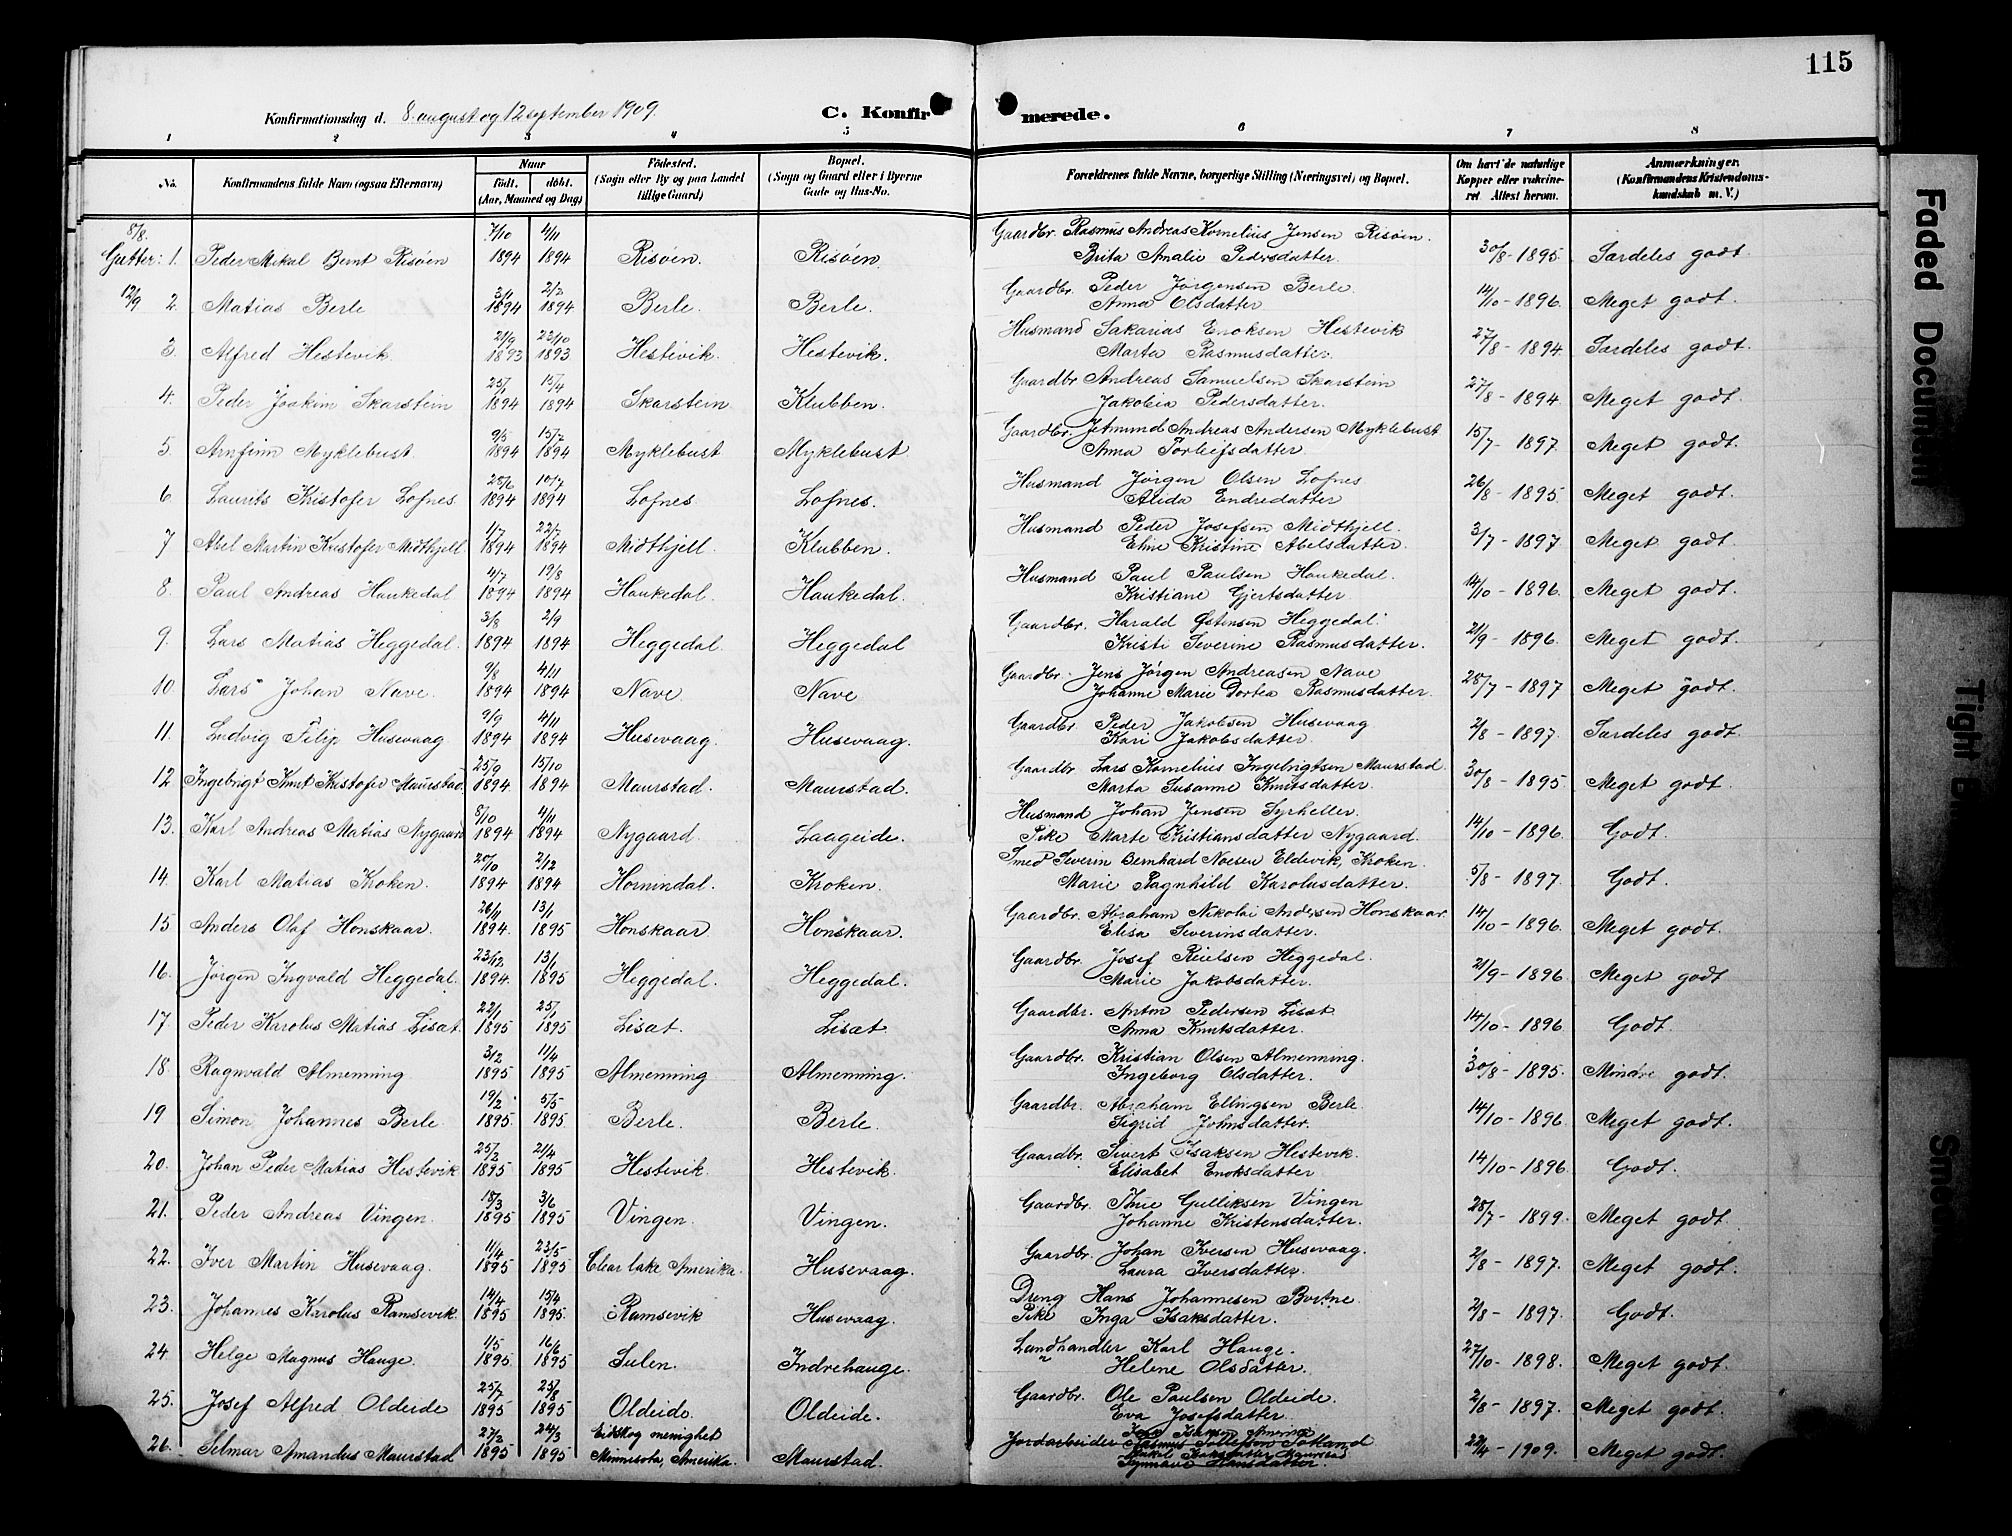 115
Konfirmationsdag d. 8 august og 12 september 1909.
C. Konfirmerede.
1 2 3 4 5 6 7 8
No. Konfirmandens fulde Navn (ogsaa Efternavn) Naar födt. döbt. (Aar, Maaned og Dag) Födested. (Sogn eller By og paa Landet tillige Gaard) Bopæl. (Sogn og Gaard eller i Byerne Gade og Hus-No. Forældrenes fulde Navne, borgerlige Stilling (Næringsvei) og Bopæl. Om havt de naturlige Kopper eller vakcineret Attest herom. Anmærkninger. (Konfirmandens Kristendomskundskab m. V.)
8/8. Gutter: 1. Peder Mikal Bernt Risöen 7/10 1894 4/11 1894 Risöen. Risöen. Gaardbr. Rasmus Andreas Kornelius Jensen Risöen. Brita Amalie Pedersdatter. 30/8-1895 Særdeles godt.
12/9 2. Matias Berle 3/1 1894 2/2 1894 Berle. Berle. Gaardbr. Peder Jörgensen Berle. Anna Olsdatter 14/10-1896. Meget godt.
3. Alfred Hestevik. 21/9 1893 23/10 1893 Hestevik. Hestevik. Husmand Sakarias Enoksen Hestevik Marta Rasmusdatter. 27/8-1894. Særdeles godt.
4. Peder Joakim Skarstein 25/1 1894 15/4 1894 Skarstein Klubben. Gaardbr Andreas Samuelsen Skarstein Jakobia Pedersdatter. 27/8-1894. Meget godt.
5. Arnfinn Myklebust 9/5 1894 15/7 1894 Myklebust Myklebust Gaardbr. Jetmund Andreas Andersen Myklebust Anna Torleifsdatter 15/7-1897. Meget godt.
6. Laurits Kristofer Lofnes 25/6 1894 10/7 1894 Lofnes. Lofnes. Husmand Jörgen Olsen Lofnes Alida Endredatter 26/8-1895 Meget godt.
7 Abel Martin Kristofer Midthjell. 1/7 1894 22/7 1894 Midthjell. Klubben. Husmand Peder Josefsen Midthjell. Eline Kristine Abelsdatter. 3/7-1897. Meget godt.
8. Paul Andreas Haukedal 4/7 1894 19/8 1894 Haukedal. Haukedal. Husmand Paul Paulsen Haukedal. Kristiane Gjertsdatter 14/10-1896. Meget godt.
9. Lars Matias Heggedal. 3/8 1894 2/9 1894 Heggedal. Heggedal Gaardbr. Harald Östensen Heggedal. Kristi Severine Rasmusdatter. 21/9-1896. Meget godt.
10. Lars Johan Nave. 9/8 1894 4/11 1894 Nave Nave Gaardbr. Jens Jörgen Andreasen Nave Johanne Marie Dortea Rasmusdatter. 28/7-1897 Meget godt.
11. Ludvig Filip Husevaag 9/9 1894 4/11 1894 Husevaag. Husevaag. Gaardbr. Peder Jakobsen Husevaag Kari Jakobsdatter. 2/8-1897. Særdeles godt.
12 Ingebrigt Knut Kristofer Maurstad. 25/9 1894 15/10 1894 Maurstad. Maurstad. Gaardbr. Lars Kornelius Ingebrigtsen Maurstad. Marta Susanne Knutsdatter. 30/8-1895 Meget godt.
13. Karl Andreas Matias Nygaard 8/10 1894 4/11 1894 Nygaard. Laageide. Husmand Johan Jensen Syrheller. Pike Marte Kristiansdatter Nygaard. 14/10-1896. Godt.
14. Karl Matias Kroken. 20/10 1894 2/12 1894 Hornindal. Kroken. Smed Severin Bernhard Eldevik, Kroken. Marie Ragnhild Karolusdatter. 5/8-1897. Godt.
15 Anders Olaf Honskaar. 26/11 1894. 13/1 1895 Honskaar. Honskaar. Gaardbr. Abraham Nikolai Andersen Honskaar. Elisa Severinsdatter. 14/10-1896. Meget godt.
16. Jörgen Ingvald Heggedal. 23/12 1894. 13/1 1895 Heggedal. Heggedal. Gaardbr. Josef Heggedal. Marie Jakobsdatter. 21/9-1896. Meget godt
17. Peder Karolus Matias Lisæt. 22/1 1895 25/1 1895 Lisæt. Lisæt. Gaardbr. Anton Pedersen Lisæt Anna Knutsdatter. 14/10-1896. Godt.
18. Ragnvald Almenning 3/2 1895 11/4 1895 Almenning Almenning. Gaardbr. Kristian Olsen Almenning. Ingeborg Olsdatter. 30/8-1895. Mindre godt.
19 Simon Johannes Berle. 19/2 1895. 5/5 1895 Berle. Berle. Gaardbr. Abraham Ellingsen Berle. Sigrid Johnsdatter. 14/10-1896. Meget godt.
20. Johan Peder Matias Hestevik 25/2 1895 21/4 1895 Hestevik. Hestevik. Gaardbr. Sivert Isaksen Hestevik. Elisabet Enoksdatter 14/10-1896. Godt.
21. Peder Andreas Vingen. 18/3 1895 3/6 1895 Vingen. Vingen. Gaardbr. Thue Gulliksen Vingen Johanne Kristensdatter. 28/7-1899. Meget godt.
22. Iver Martin Husevaag. 11/4 1895 23/5 1895 Clear lake, Amerika. Husevaag. Gaardbr. Johan Iversen Husevaag. Laura Iversdatter. 2/8-1897. Meget godt.
23. Johannes Karolus Ramsevik. 14/4 1895 15/4 1895. Ramsevik Husevaag. Dreng Hans Johannesen Botne Pike Inga Isaksdatter. 2/8-1897. Godt.
24 Helge Magnus Hauge. 1/5 1895 16/6 1895 Sulen. Indrehauge. Landhandler Karl Hauge. " Helene Olsdatter. 27/10-1898. Meget godt.
25. Josef Alfred Oldeide 25/7 1895 25/8 1895 Oldeide. Oldeide. Gaardbr. Ole Paulsen Oldeide. Eva Josefsdatter 2/8-1897. Meget godt.
26. Selmar Amandus Maurstad 27/2 1895 24/3 1895 Eidskog menighet Minnesota, Amerika. Maurstad. Jordarbeider Rasmus Tollefsen Totland Synnøve Hansdatter. 22/4-1909. Meget godt.
Faded Document
Tight B
Sm